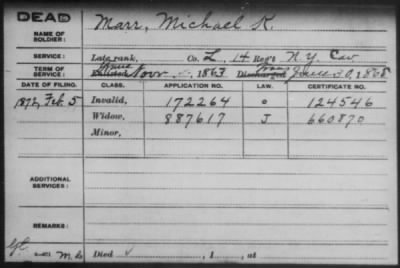 DEAD
NAME OF SOLDIER: Marr, Michael K.
SERVICE: Late rank, Co. L, 14 Reg't N.Y. Cav
TERM OF SERVICE: Enlisted Novr 1863 Discharged June 30, 1865
DATE OF FILING. CLASS. APPLICATION NO. LAW. CERTIFICATE NO.
1872, Feb. 5 Invalid, 172264 o 124546
Widow, 887617 J 660870
Minor,
ADDITIONAL SERVICES:
REMARKS:
Died , 1 , at